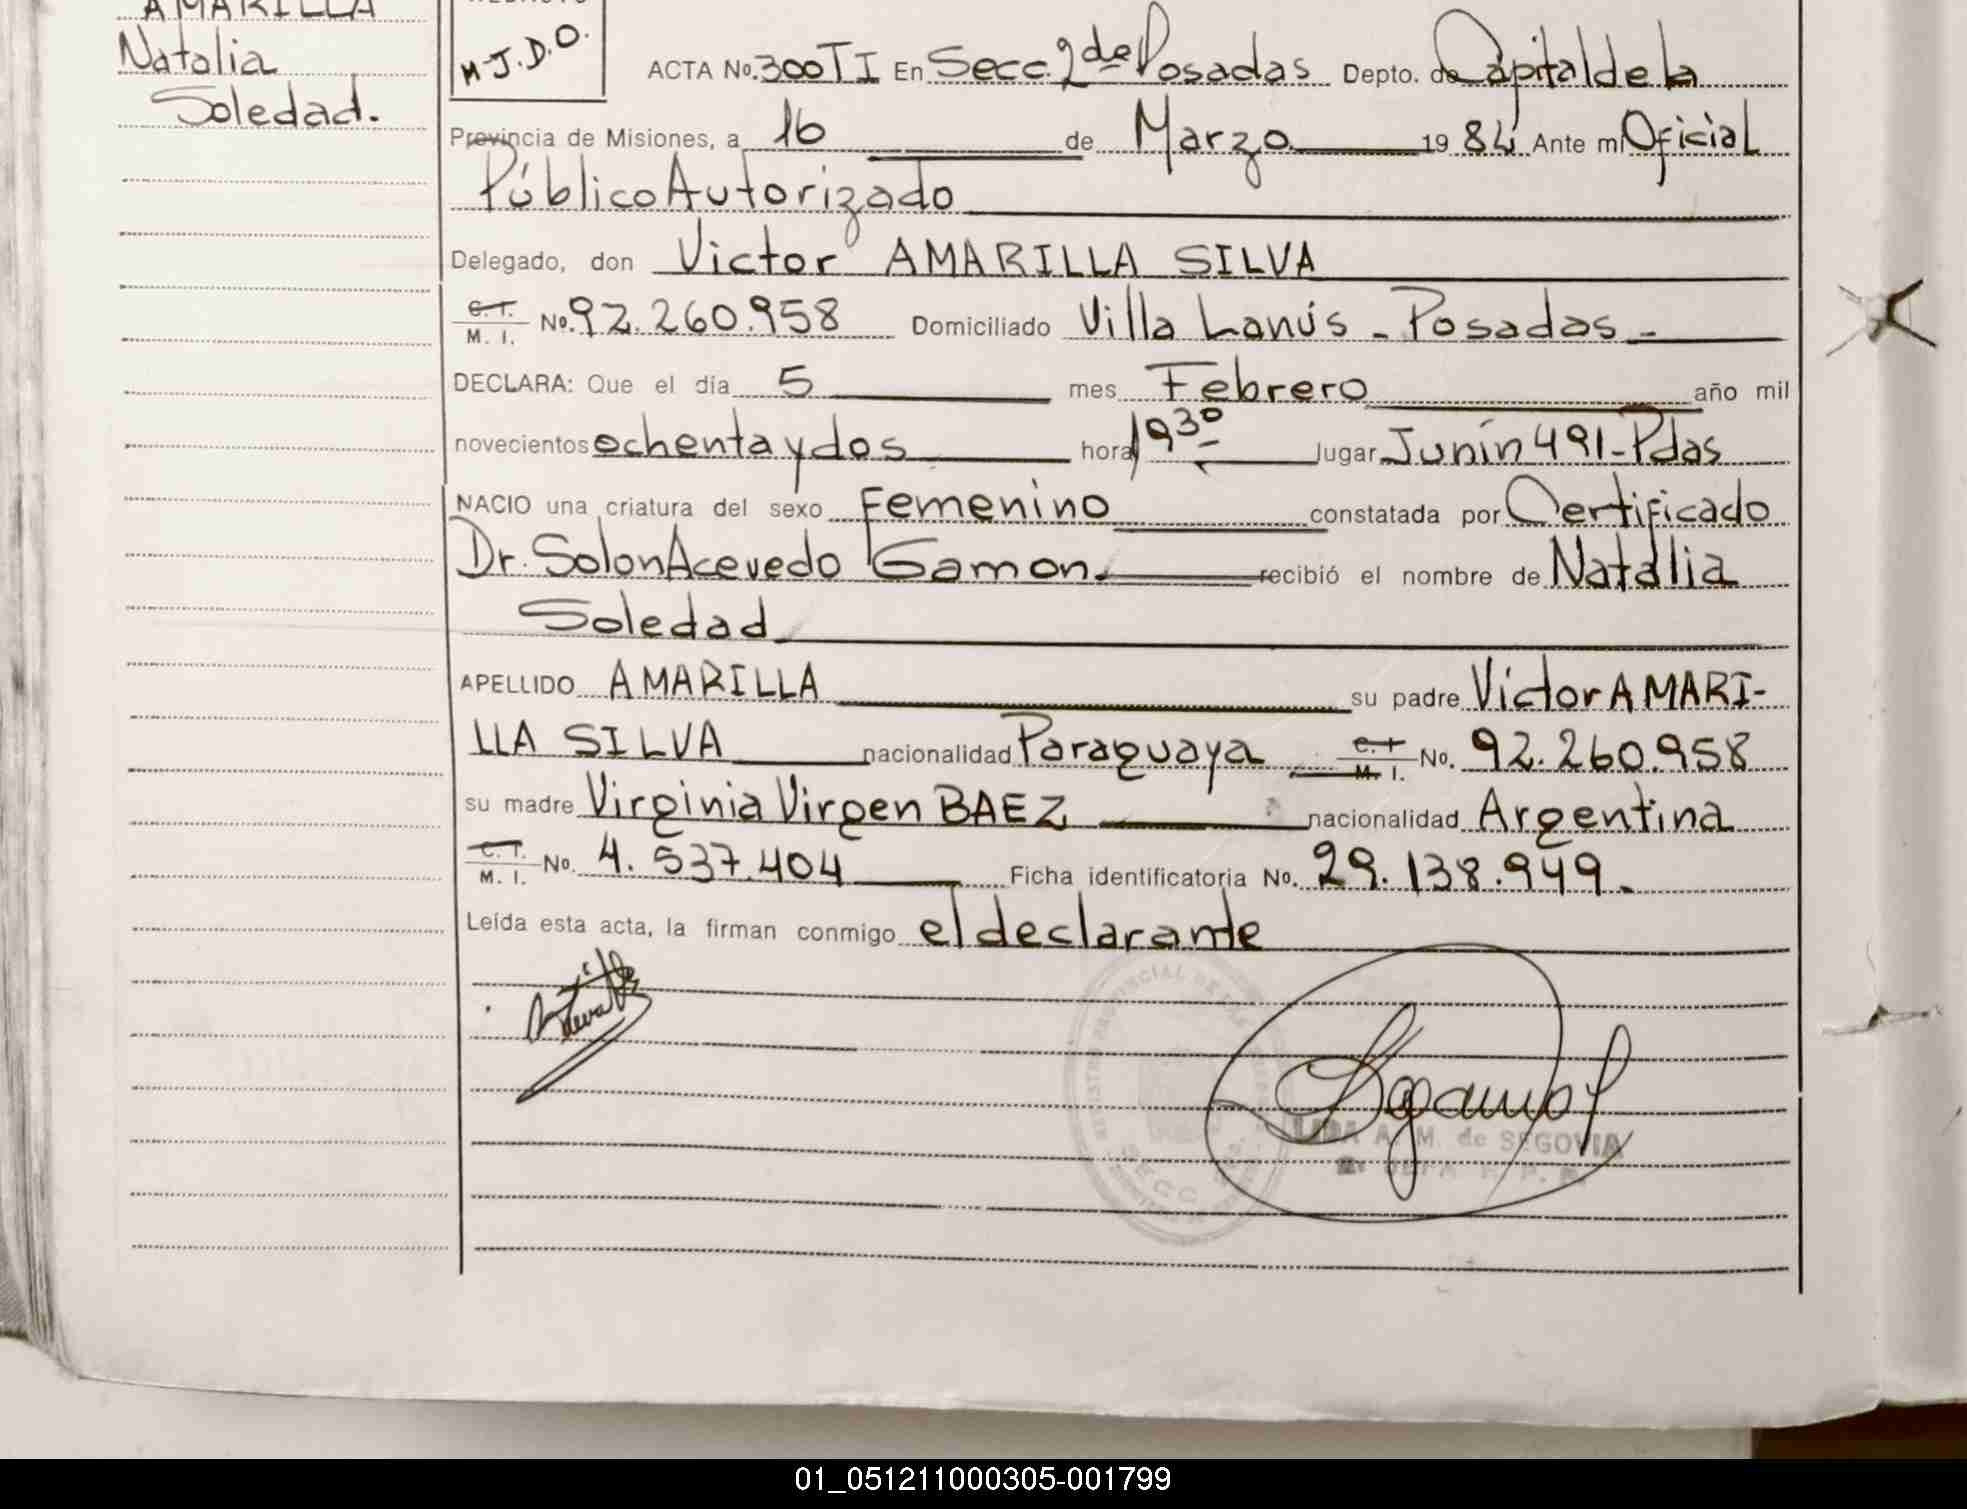 AMARILLA
Natalia
Soledad.
M.J.D.O.
ACTA No. 300 TI En Secc. 2da Posadas Depto. de Capital de la
Provincia de Misiones, a 16 de Marzo 1984 Ante mi Oficial
Público Autorizado
Delegado, don Victor AMARILLA SILVA
C.I. M. I. No. 92.260.958 Domiciliado Villa Lanús - Posadas -
DECLARA: Que el día 5 mes Febrero año mil
novecientos ochenta y dos hora 19 30 lugar Junín 491 - Pdas
NACIO una criatura del sexo Femenino constatada por Certificado
Dr. Solon Acevedo Gamon. recibió el nombre de Natalia
Soledad
APELLIDO AMARILLA su padre Victor AMARI-
LLA SILVA nacionalidad Paraguaya C.I. M. I. No. 92.260.958
su madre Virginia Virgen BAEZ nacionalidad Argentina
C.I. M. I. No. 4.537.404 Ficha identificatoria No. 29.138.949.
Leída esta acta, la firman conmigo el declarante
A. M. de SEGOVIA
01_051211000305-001799